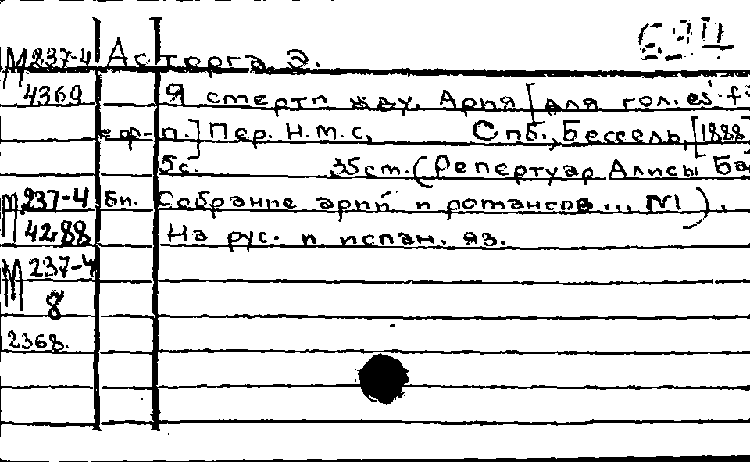 М237-4 Асторга, Э.
4369 Я смерти жду. Ария [для гол. es'-f
с ф-п.] Пер. Н.М.С, Спб., Бессель, [1888
5с. 35см. (Репертуар Алисы Ба
М237-4 Би. Собрание арий и романсов... №1).
4288 На рус. и испан. яз.
М237-4
8
2368.